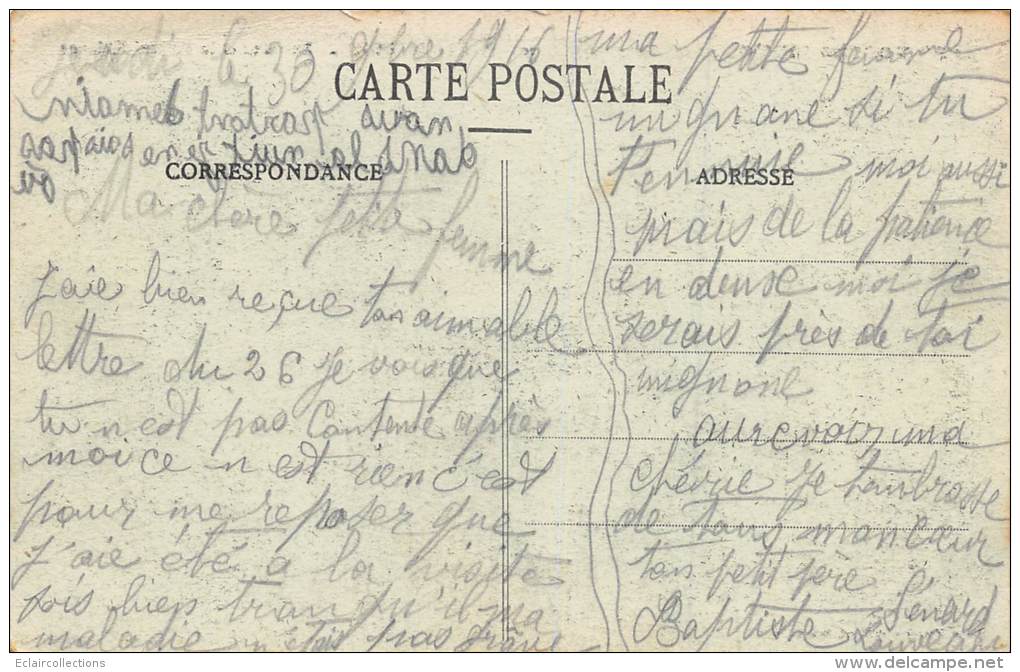 Jeudi le 30 9bre 1916
CARTE POSTALE
CORRESPONDANCE
Ma chère petite femme
J'aie bien reçue ton aimable
lettre du 26 je vois que
tu n'est pas contente après
moi ce n'est rien c'est
pour me reposer que
j'aie été a la visite
sois bien tranqu'il ma
maladie n'étai pas grave
ma petite femme
ADRESSE
mignone si tu
t'ennuie moi aussi
prais de la patience
en deuse moi je
serais près de toi
mignone
aurevoir ma
chérie je t'enbrasse
de tous mon cœur
ton petit père
Baptiste Lénard
Eclaircollections
www.delcampe.net